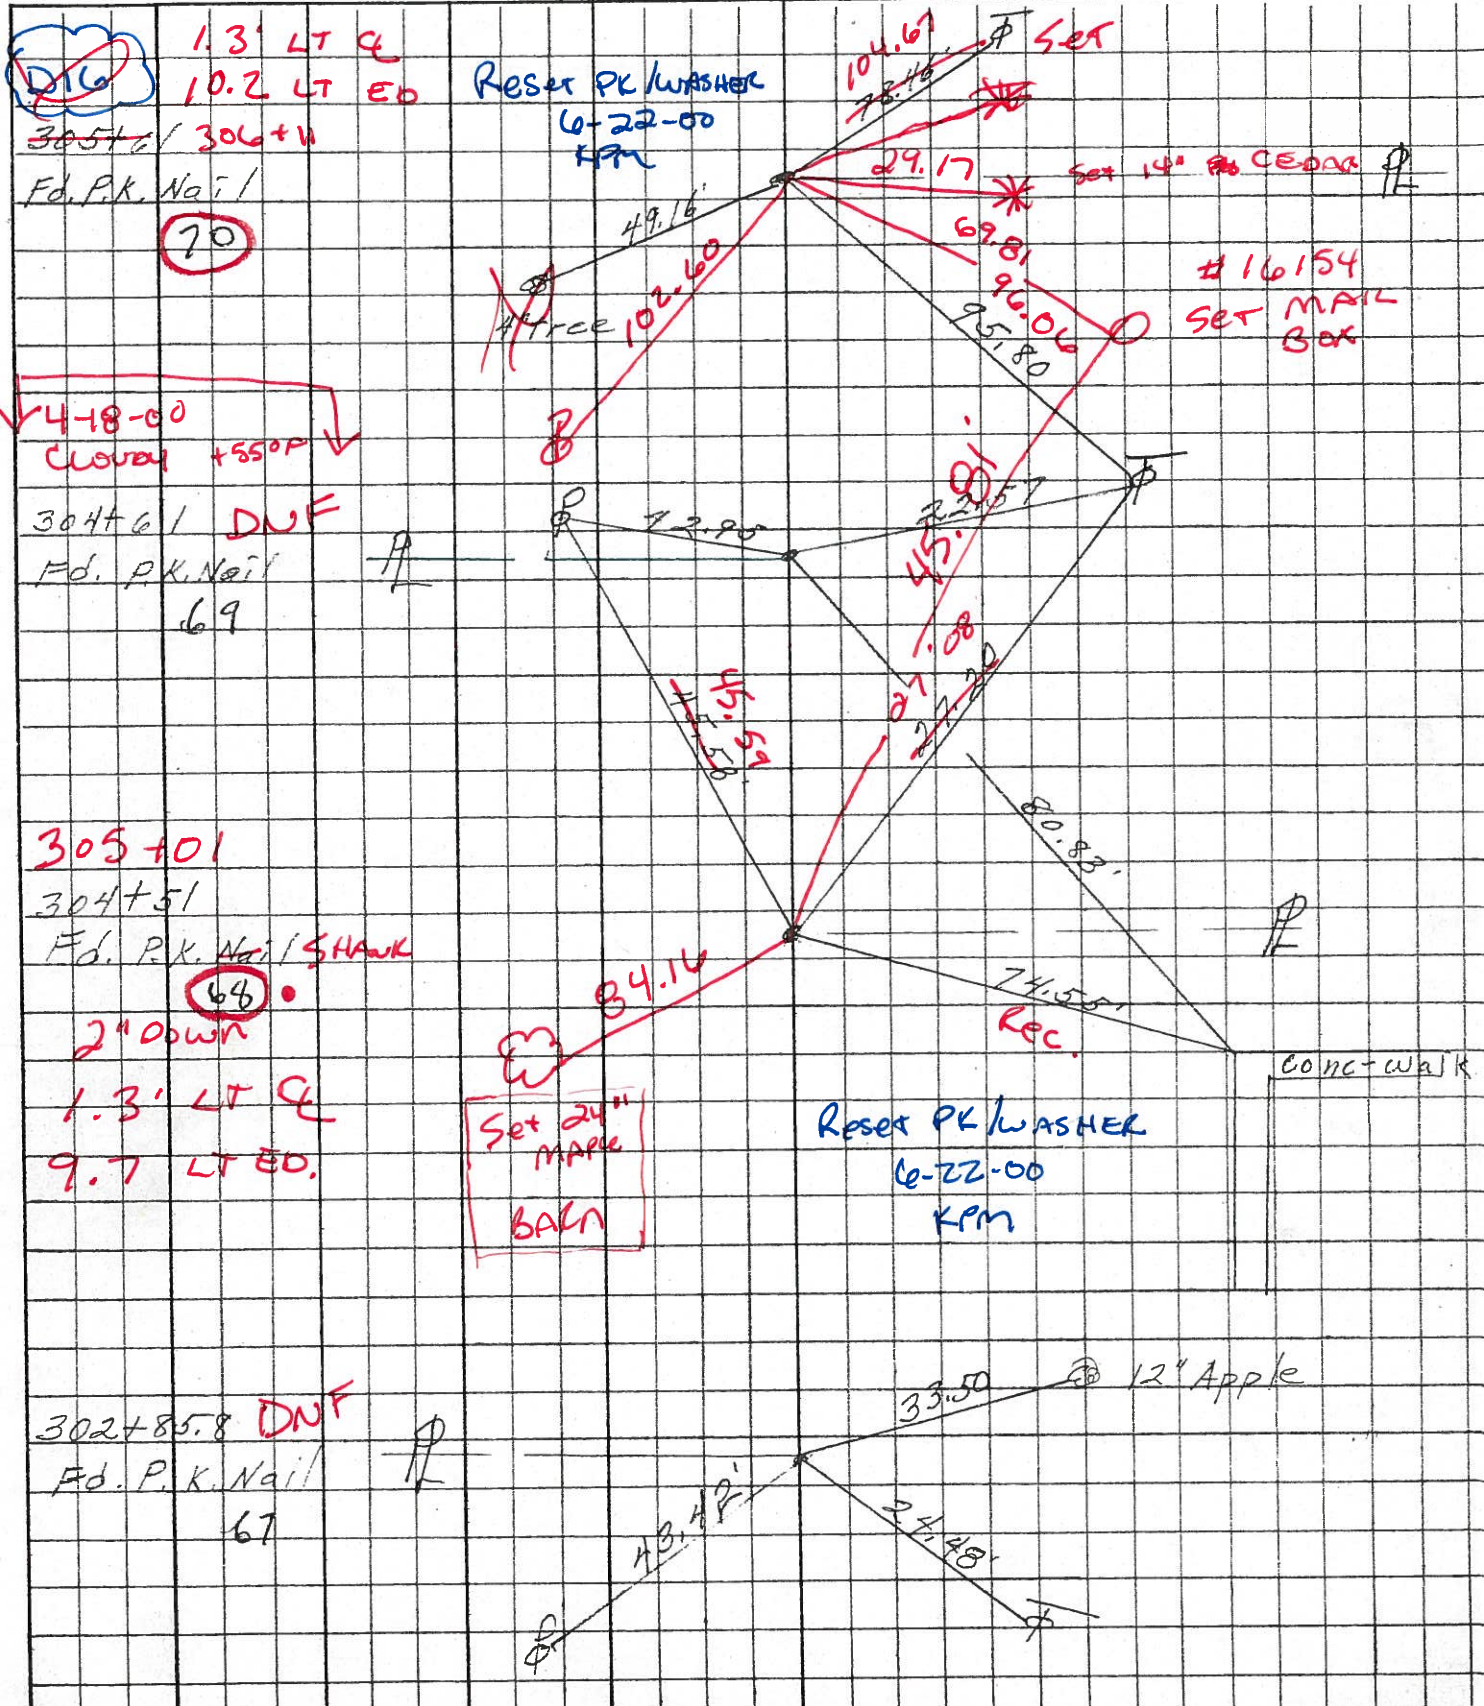 DTG
1.3' LT ℄
10.2 LT ED
305+61 306+11
Fd. P.K. Nail
70
Reset PK/WASHER
6-22-00
KPM
104.67
78.46
Set
29.17
Set 14" CEDAR ⅊
69.81
96.06
#16154
Set MAIL
BOX
49.16'
4" tree
102.60
95.80
4-18-00
Cloudy +55°F
304+61 DNF
Fd. P.K. Nail
69
⅊
72.95
22.57
45.81'
27.08
27.20
45.58'
45.59
80.83'
305+01
304+51
Fd. P.K. Nail SHANK
68
2" Down
1.3' LT ℄
9.7 LT ED.
⅊
84.14
74.55'
Rec.
conc-walk
Set 24"
MAPLE
BARN
Reset PK/WASHER
6-22-00
KPM
302+85.8 DNF
Fd. P.K. Nail
67
⅊
33.50
12" Apple
24.48'